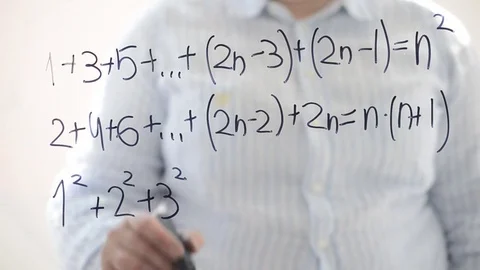 1+3+5+...+(2n-3)+(2n-1)=n²
2+4+6+...+(2n-2)+2n=n·(n+1)
1²+2²+3²